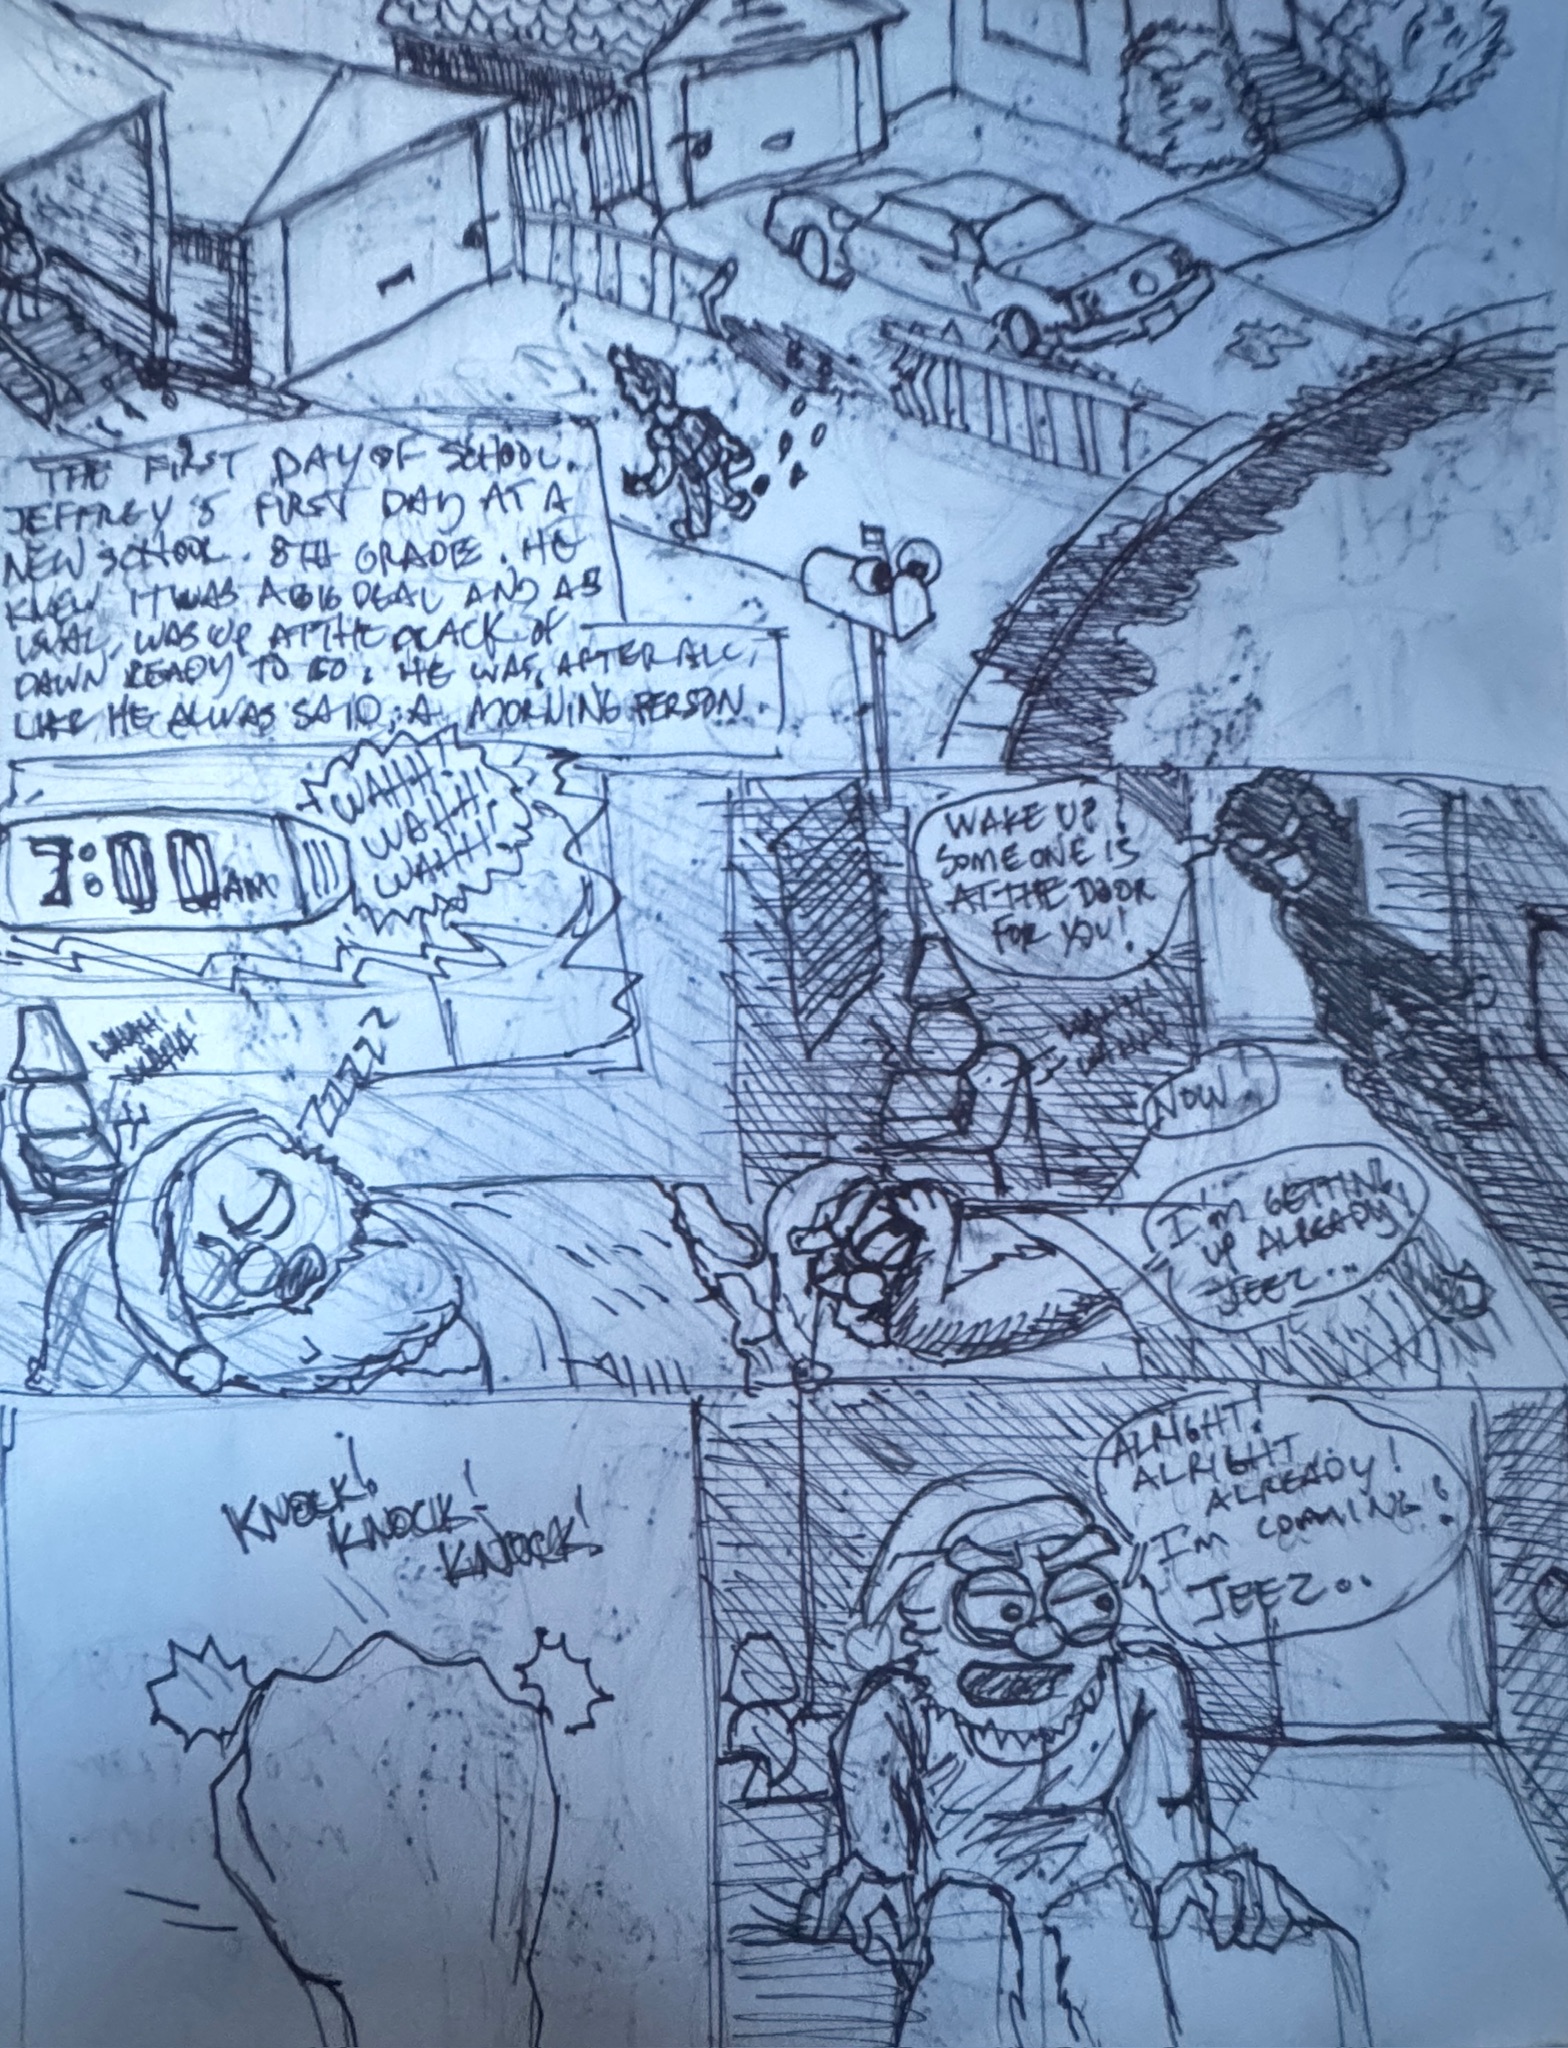 THE FIRST DAY OF SCHOOL.
JEFFREY'S FIRST DAY AT A
NEW SCHOOL. 8TH GRADE. HE
KNEW IT WAS A BIG DEAL AND AS
USUAL, WAS UP AT THE CRACK OF
DAWN READY TO GO. HE WAS, AFTER ALL,
LIKE HE ALWAS SAID, A MORNING PERSON
7:00 AM
WAHH!
WAHH!
WAHH!
WAHH!
WAHH!
ZZZZ
WAKE UP!
SOMEONE IS
AT THE DOOR
FOR YOU!
WAHH!
NOW!
I'M GETTING
UP ALREADY!
JEEZ...
KNOCK!
KNOCK!
KNOCK!
ALRIGHT!
ALRIGHT
ALREADY!
I'M COMMING!
JEEZ..